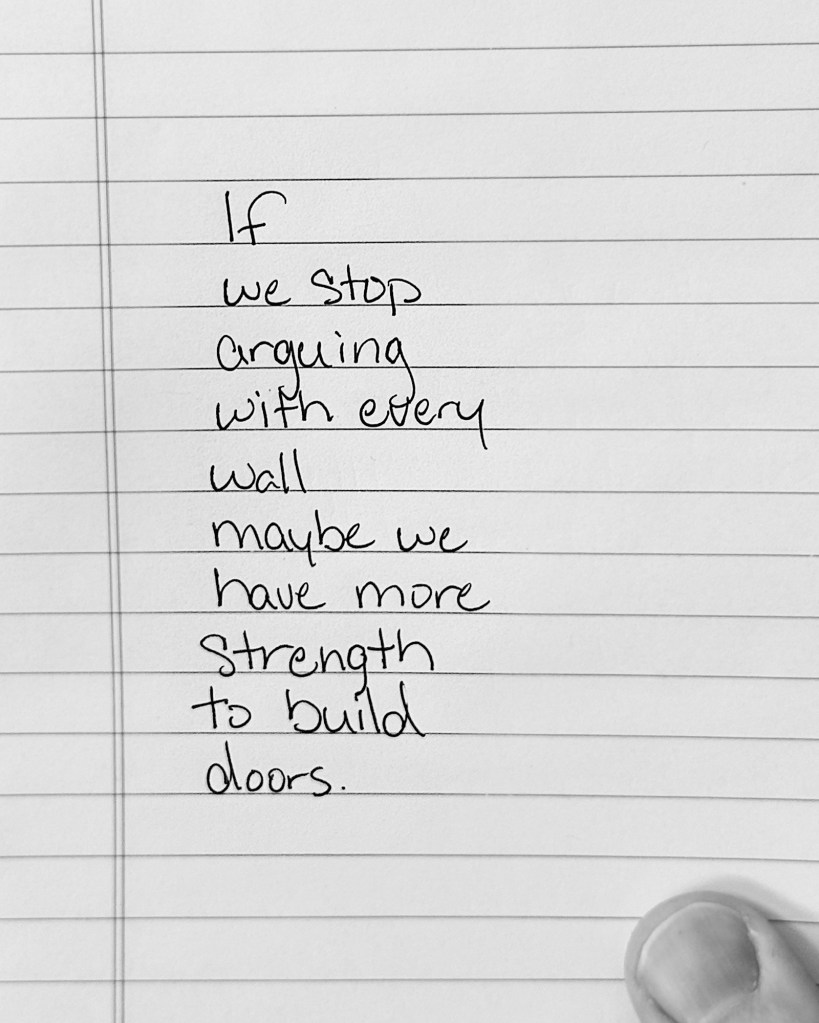 If
we stop
arguing
with every
wall
maybe we
have more
strength
to build
doors.